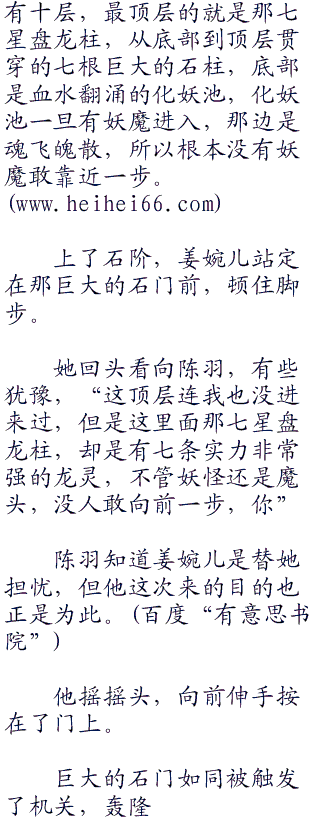 有十层，最顶层的就是那七
星盘龙柱，从底部到顶层贯
穿的七根巨大的石柱，底部
是血水翻涌的化妖池，化妖
池一旦有妖魔进入，那边是
魂飞魄散，所以根本没有妖
魔敢靠近一步。
(www.heihei66.com)
上了石阶，姜婉儿站定
在那巨大的石门前，顿住脚
步。
她回头看向陈羽，有些
犹豫，“这顶层连我也没进
来过，但是这里面那七星盘
龙柱，却是有七条实力非常
强的龙灵，不管妖怪还是魔
头，没人敢向前一步，你”
陈羽知道姜婉儿是替她
担忧，但他这次来的目的也
正是为此。(百度“有意思书
院”)
他摇摇头，向前伸手按
在了门上。
巨大的石门如同被触发
了机关，轰隆